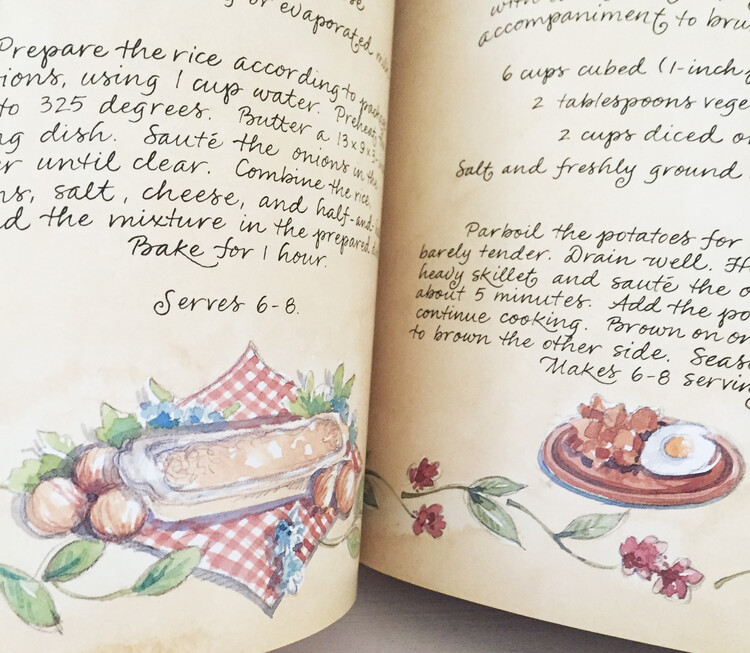 or evaporated
Prepare the rice according to
using 1 cup water. Preheat
to 325 degrees. Butter a 13x9x3-
dish. Sauté the onions in the
until clear. Combine the rice,
salt, cheese, and half-and-
the mixture in the prepared
Bake for 1 hour.
Serves 6-8.
accompaniment to
6 cups cubed (1-inch
2 tablespoons
2 cups diced
Salt and freshly ground
Parboil the potatoes for
barely tender. Drain well.
heavy skillet and sauté the
about 5 minutes. Add the
continue cooking. Brown on
to brown the other side.
Makes 6-8